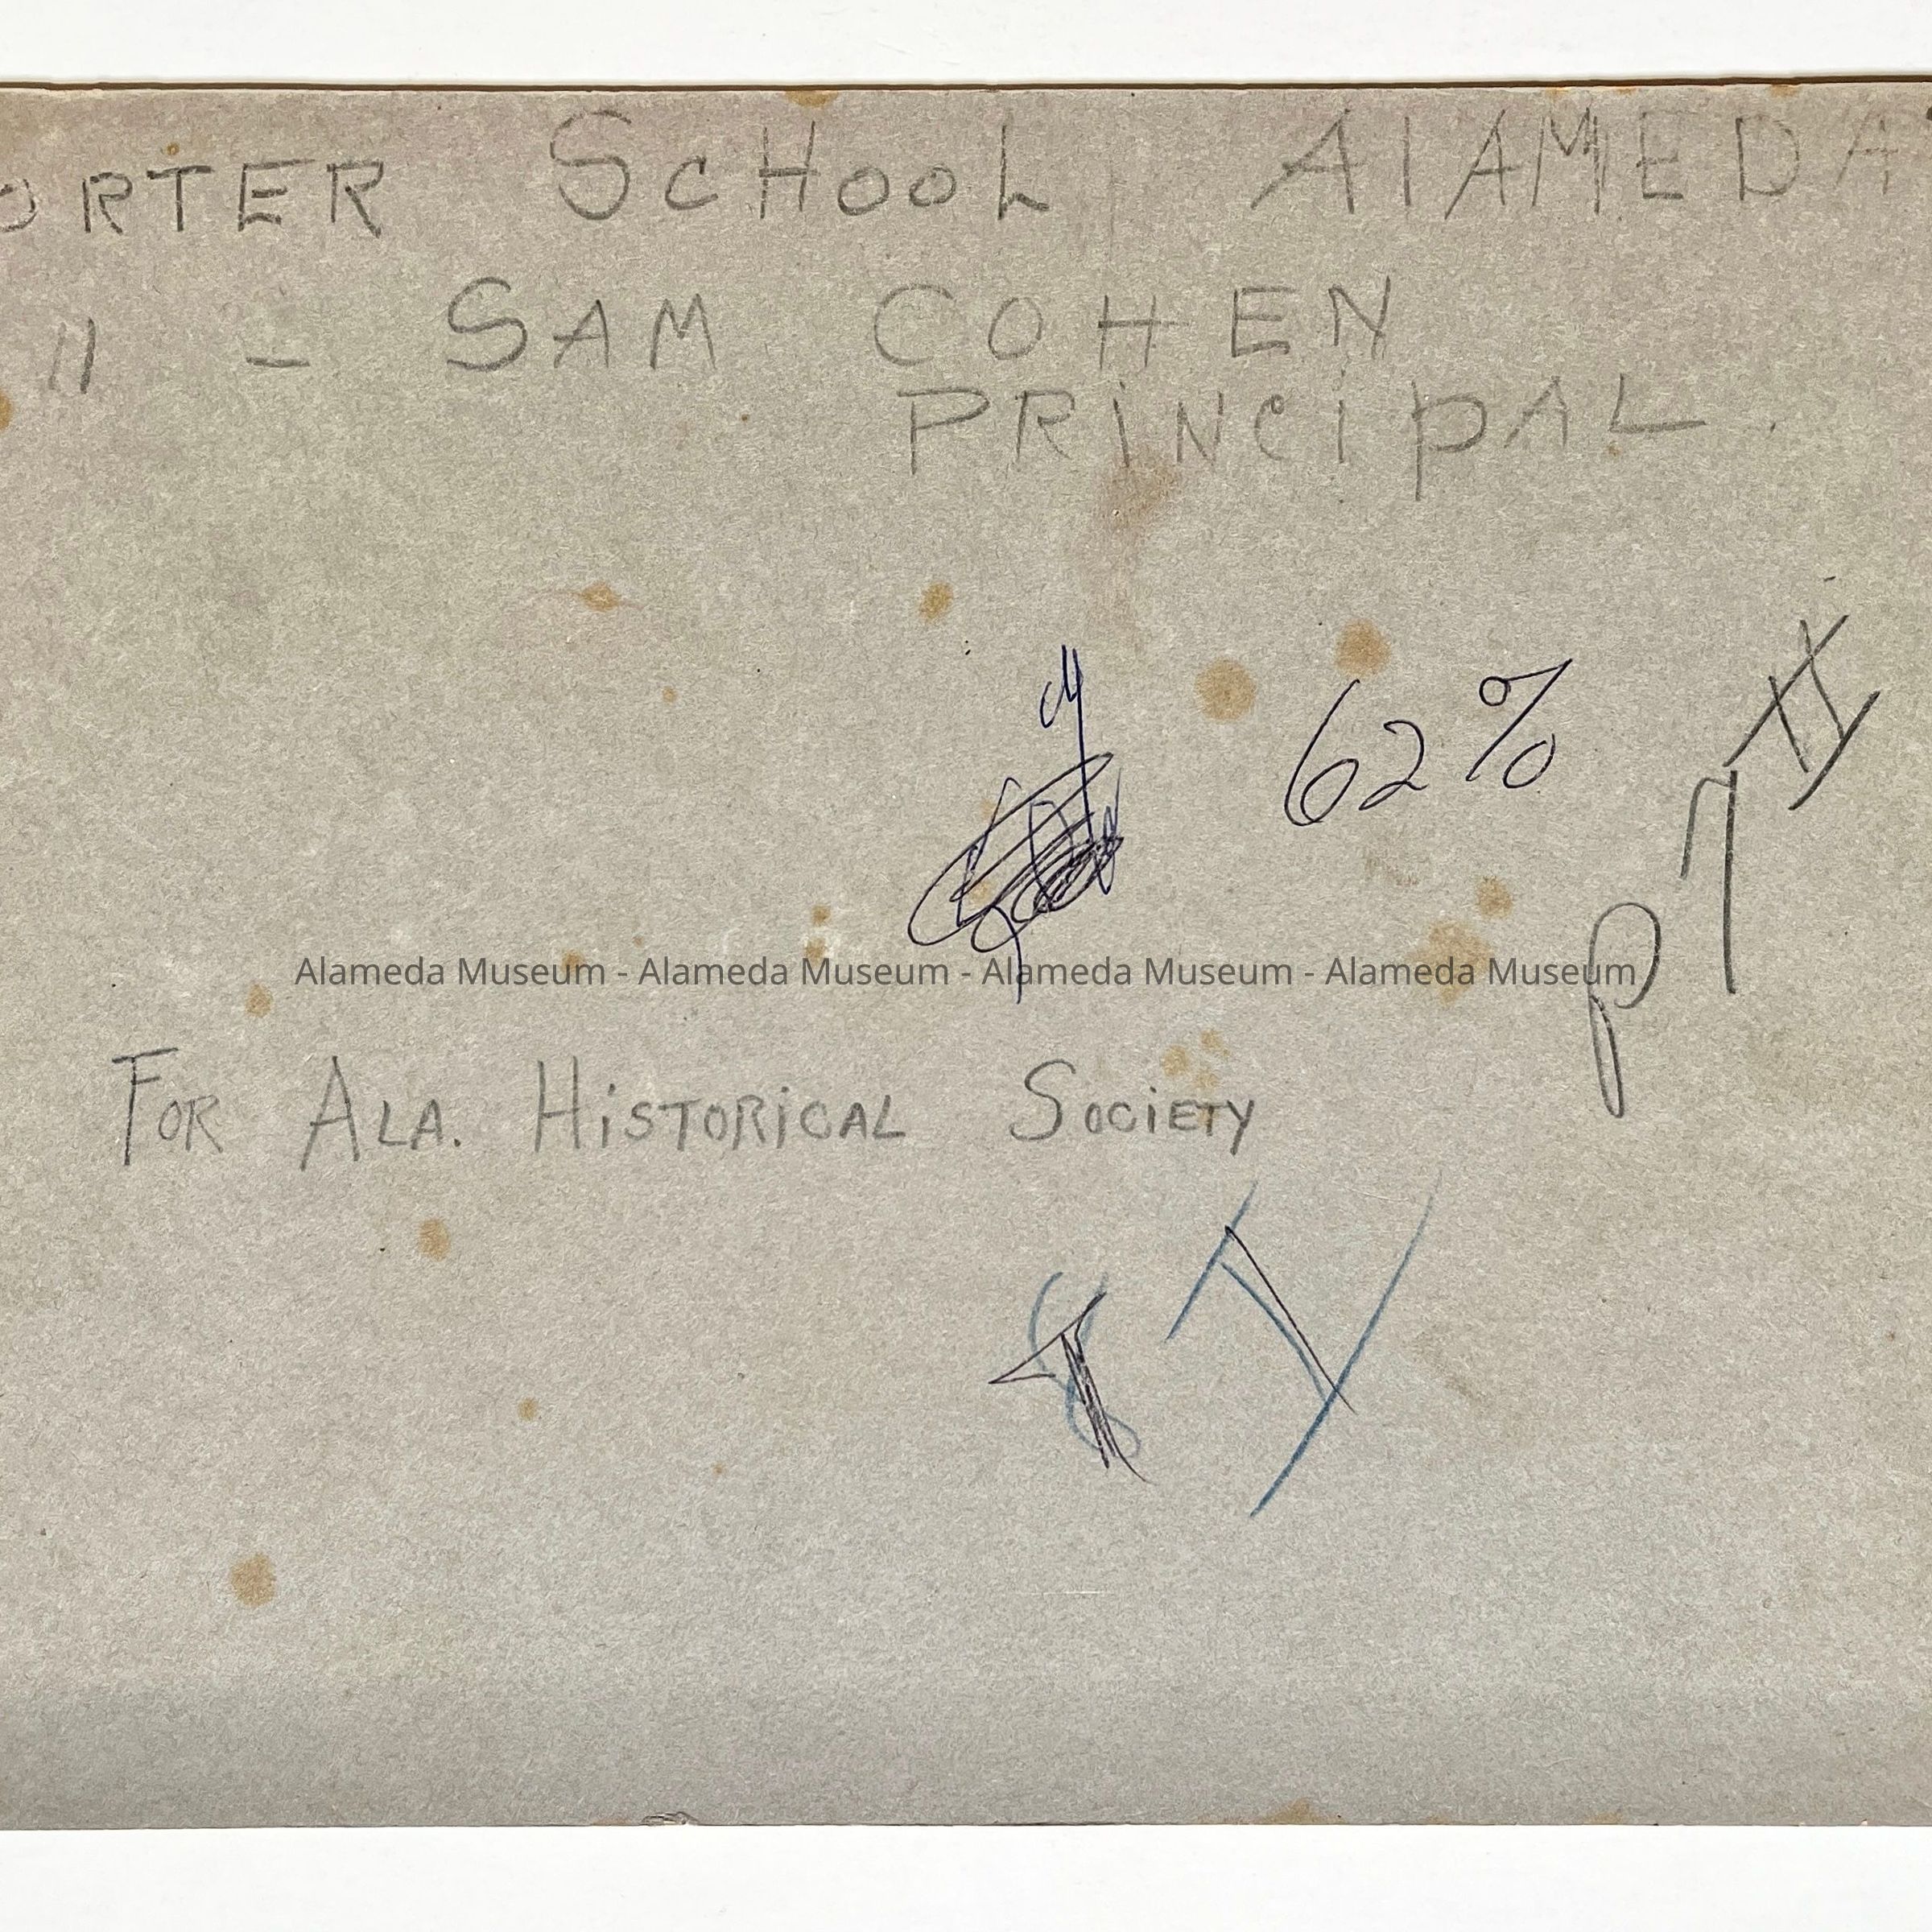 ORTER SCHOOL ALAMEDA
" - SAM COHEN
PRINCIPAL.
62%
Alameda Museum - Alameda Museum - Alameda Museum - Alameda Museum
FOR ALA. HISTORICAL SOCIETY